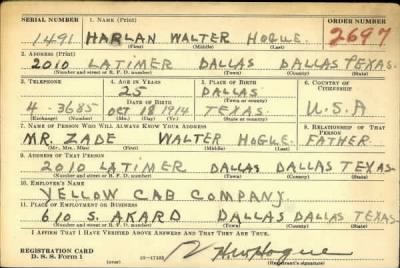 SERIAL NUMBER 1. NAME (Print) ORDER NUMBER
1491 HARLAN WALTER HOGUE 2697
(First) (Middle) (Last)
2. ADDRESS (Print)
2010 LATIMER DALLAS DALLAS TEXAS
(Number and street or R. F. D. number) (Town) (County) (State)
3. TELEPHONE 4. AGE IN YEARS 5. PLACE OF BIRTH 6. COUNTRY OF CITIZENSHIP
25 DALLAS
DATE OF BIRTH (Town or county)
4-3685 OCT 18 1914 TEXAS. U.S.A
(Exchange) (Number) (Mo.) (Day) (Yr.) (State or country)
7. NAME OF PERSON WHO WILL ALWAYS KNOW YOUR ADDRESS 8. RELATIONSHIP OF THAT PERSON
MR. ZADE WALTER HOGUE FATHER
(Mr., Mrs., Miss) (First) (Middle) (Last)
9. ADDRESS OF THAT PERSON
2010 LATIMER DALLAS DALLAS TEXAS
(Number and street or R. F. D. number) (Town) (County) (State)
10. EMPLOYER'S NAME
YELLOW CAB COMPANY.
11. PLACE OF EMPLOYMENT OR BUSINESS
610 S. AKARD DALLAS DALLAS TEXAS
(Number and street or R. F. D. number) (Town) (County) (State)
I AFFIRM THAT I HAVE VERIFIED ABOVE ANSWERS AND THAT THEY ARE TRUE.
REGISTRATION CARD
D. S. S. Form 1 (over) 16-17105 (Registrant's signature)